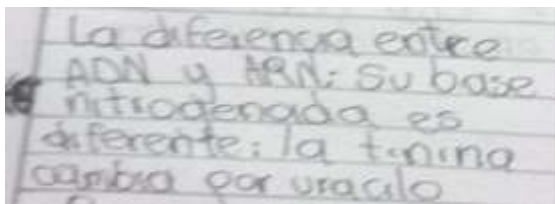 La diferencia entre
ADN y ARN: Su base
nitrogenada es
diferente: la timina
cambia por uracilo